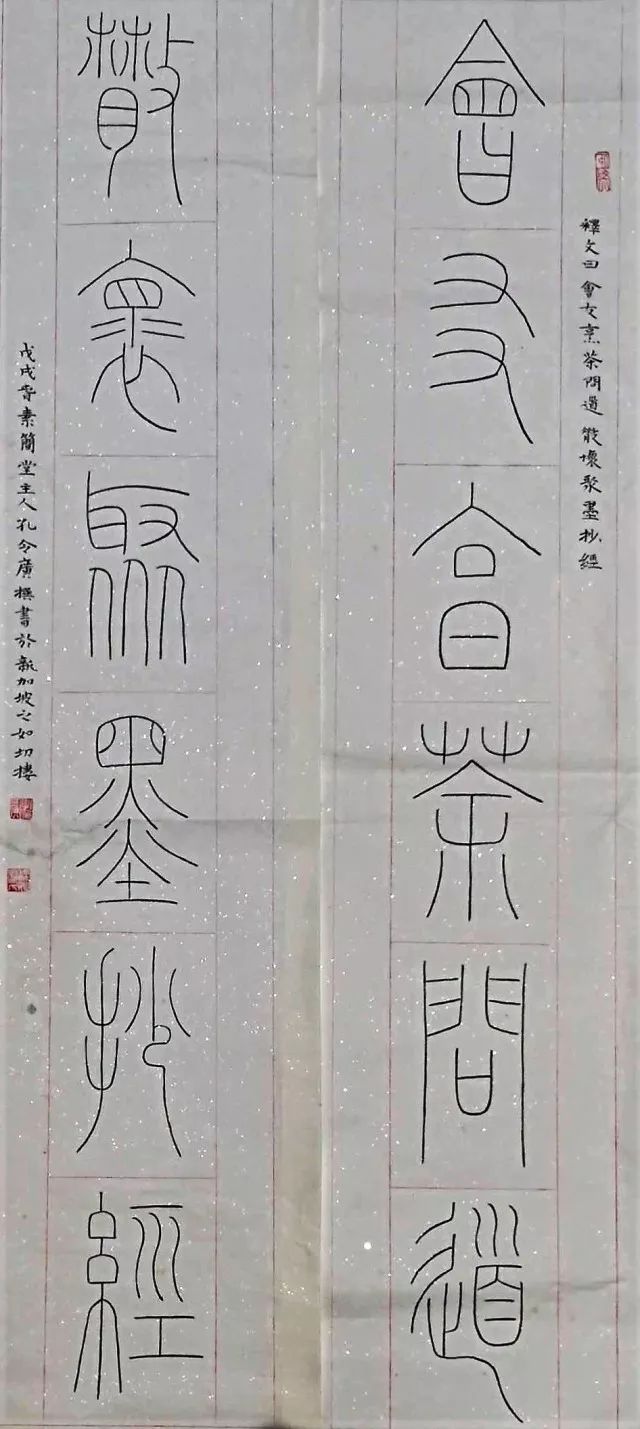 釋文曰會友烹茶問道散懷聚墨抄經
會友烹茶問道
散懷聚墨抄經
戊戌春素簡堂主人孔令廣撰書於新加坡之如切樓